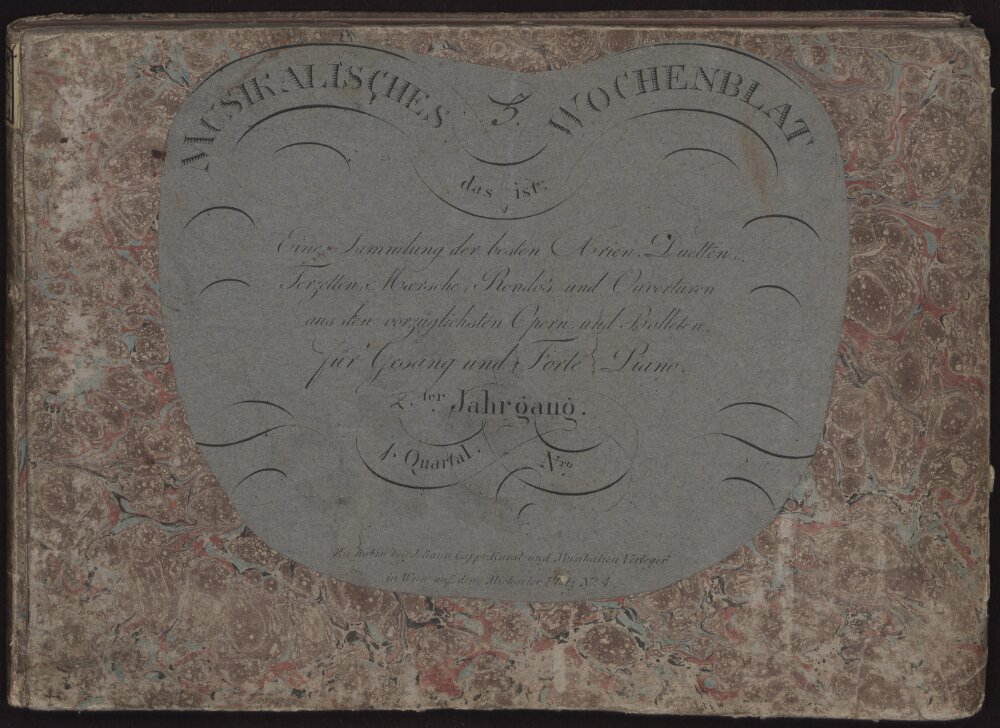 MUSIKALISCHES 3. WOCHENBLAT
das ist:
Eine Sammlung der besten Arien, Duetten,
Terzetten, Mærsche, Rondo's und Ouverturen
aus den vorzüglichsten Opern und Balleten,
für Gesang und Forte Piano.
2.ter Jahrgang.
1. Quartal. Nro.
Zu haben bey Johann Cappi Kunst und Musikalien Verleger
in Wien auf dem Michaeler Platz No. 4